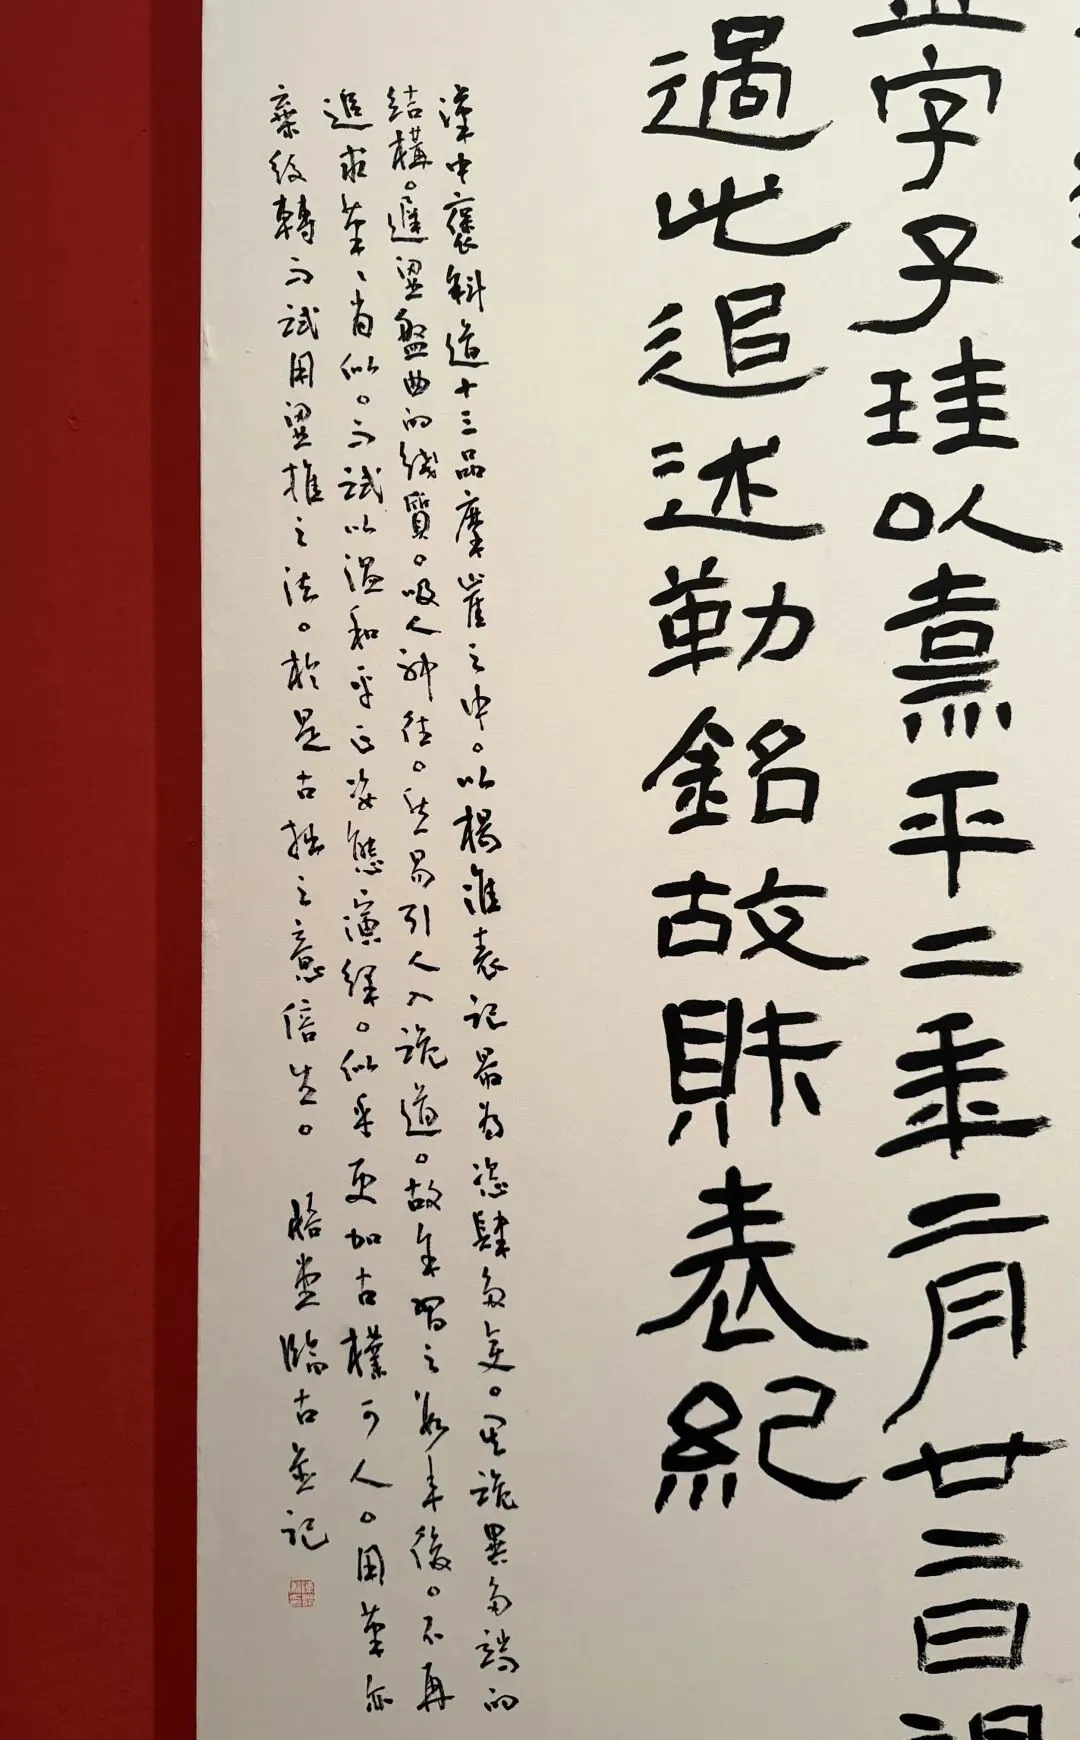 字子珪以熹平二年二月廿二日
過此追述勒銘故財表紀
漢中褒斜道十三品摩崖之中。以楊淮表記最為恣肆多變。其詭異多端的
結構。遲澀盤曲的綫質。吸人神往。然易引人入詭道。故余習之数年後。不再
追求筆、肖似。而試以溫和平正姿態演繹。似乎更加古樸可人。用筆亦
棄絞轉而試用澀推之法。於是古拙之意倍生。 臨古並記